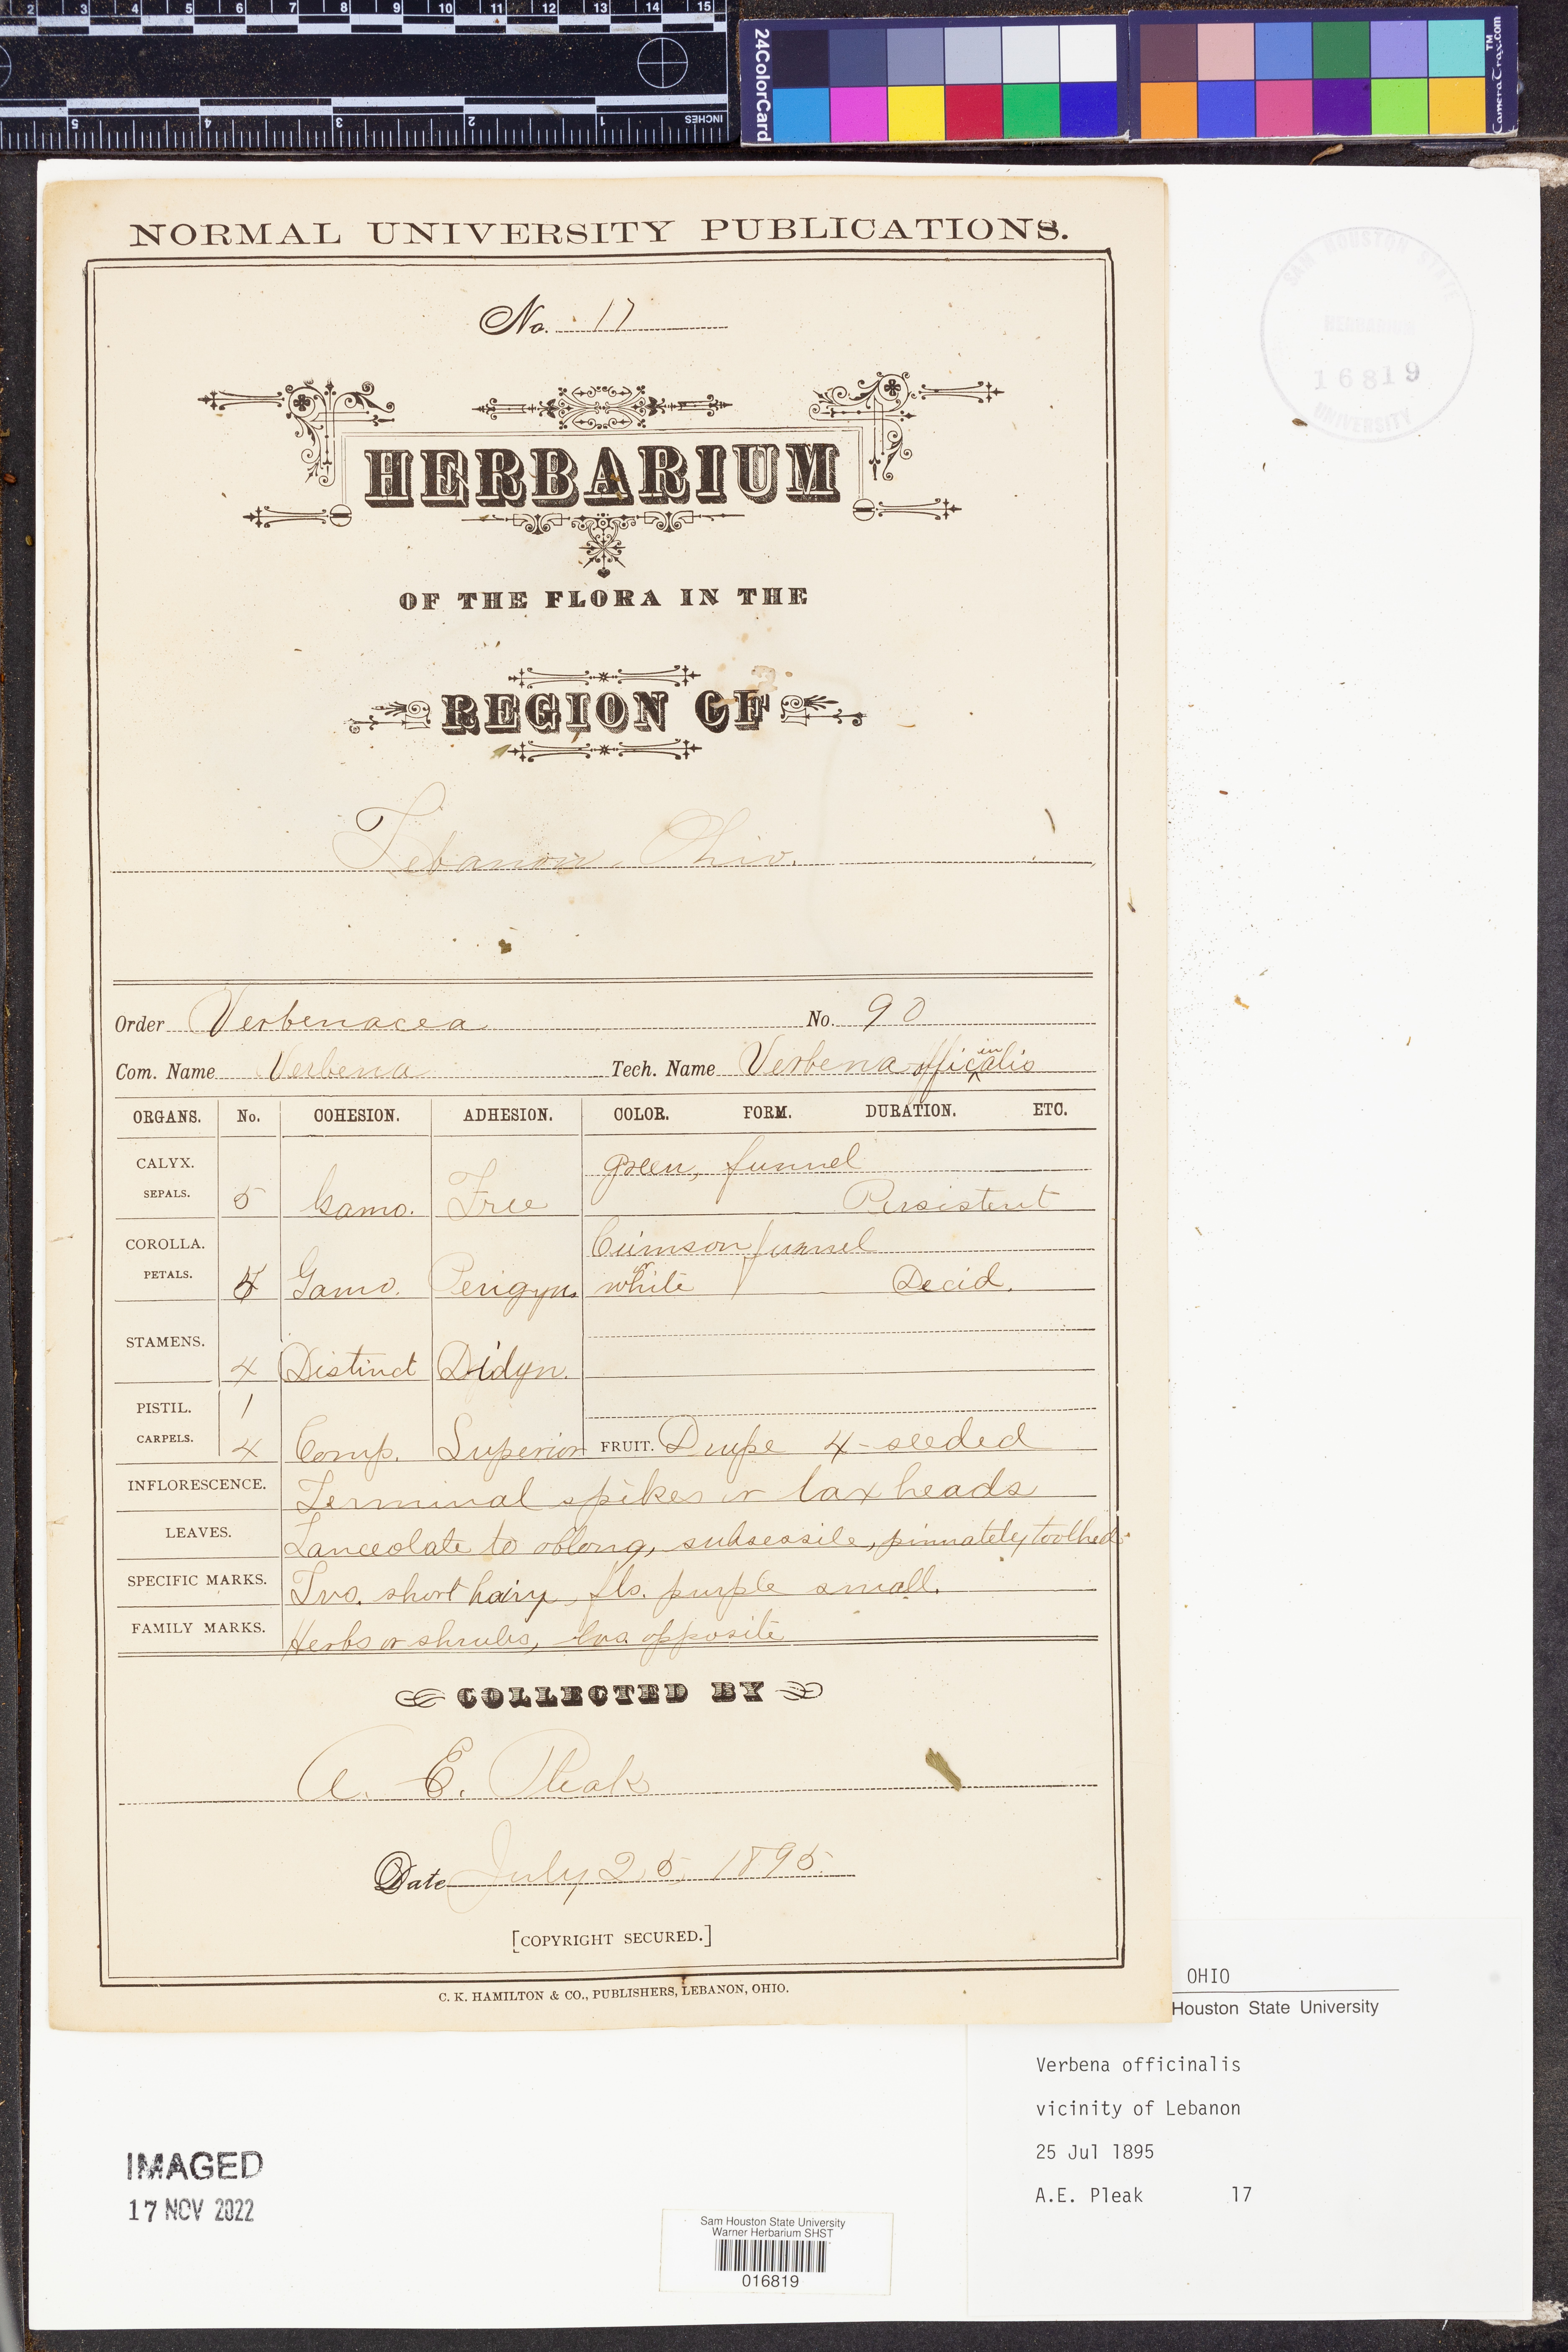 2 3 4 5 6 7 8 9 10 11 12 13 14 15
5 4 3 2 1 INCHES
24ColorCard
CameraTrax.com™
NORMAL UNIVERSITY PUBLICATIONS.
SAM HOUSTON STATE
HERBARIUM
16819
UNIVERSITY
No. 17
HERBARIUM
OF THE FLORA IN THE
REGION OF
Lebanon, Ohio.
Order Verbenacea No. 90
Com. Name Verbena Tech. Name Verbena officinalis
ORGANS. No. COHESION. ADHESION. COLOR. FORM. DURATION. ETC.
CALYX. green, funnel
SEPALS. 5 Gamo. Free Persistent
COROLLA. Crimson funnel
PETALS. Gamo. Perigyn. or white Decid.
STAMENS. 4 Distinct Didyn.
PISTIL. 1
CARPELS. 4 Comp. Superior FRUIT. Drupe 4-seeded
INFLORESCENCE. Terminal spikes or lax heads
LEAVES. Lanceolate to oblong, subsessile, pinnately toothed.
SPECIFIC MARKS. Lvs. short hairy, fls. purple small.
FAMILY MARKS. Herbs or shrubs, lvs. opposite
COLLECTED BY
A. E. Pleak
Date July 25, 1895.
[COPYRIGHT SECURED.]
C. K. HAMILTON & CO., PUBLISHERS, LEBANON, OHIO.
OHIO
Houston State University
Verbena officinalis
vicinity of Lebanon
25 Jul 1895
A.E. Pleak 17
IMAGED
17 NOV 2022
Sam Houston State University
Warner Herbarium SHST
016819